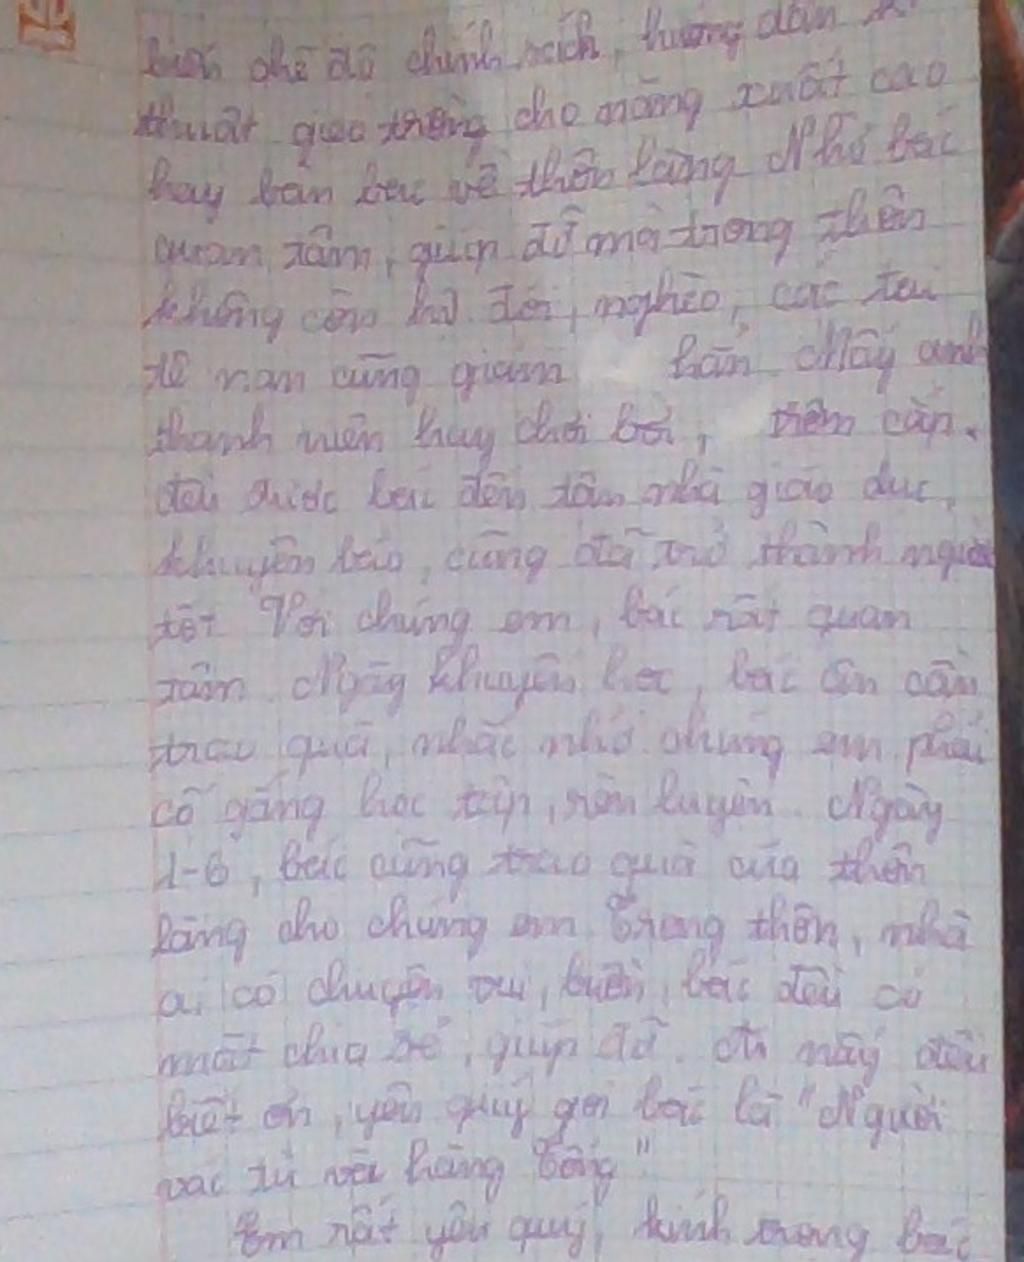 chế độ chính sách, hướng dẫn
thuật gieo trồng cho năng xuất cao
hay bàn bạc về thôn làng. Nhờ bác
quan tâm, giúp đỡ mà trong thôn
không còn hộ đói, nghèo, các tai
tệ nạn cũng giảm hẳn. Mấy anh
thanh niên hay chơi bời, tiêm cắp.
đều được bác đến tận nhà giáo dục,
khuyên bảo, cũng đã trở thành người
tốt. Với chúng em, bác rất quan
tâm. Ngày khuyến học, bác ân cần
trao quà, nhắc nhở chúng em phải
cố gắng học tập, rèn luyện. Ngày
1-6, bác cũng trao quà của thôn
làng cho chúng em. Trong thôn, nhà
ai có chuyện vui, buồn, bác đều có
mặt chia sẻ, giúp đỡ. Ai nấy đều
biết ơn, yêu quý gọi bác là "Người
vác tù và hàng tổng"
Em rất yêu quý, kính trọng bác